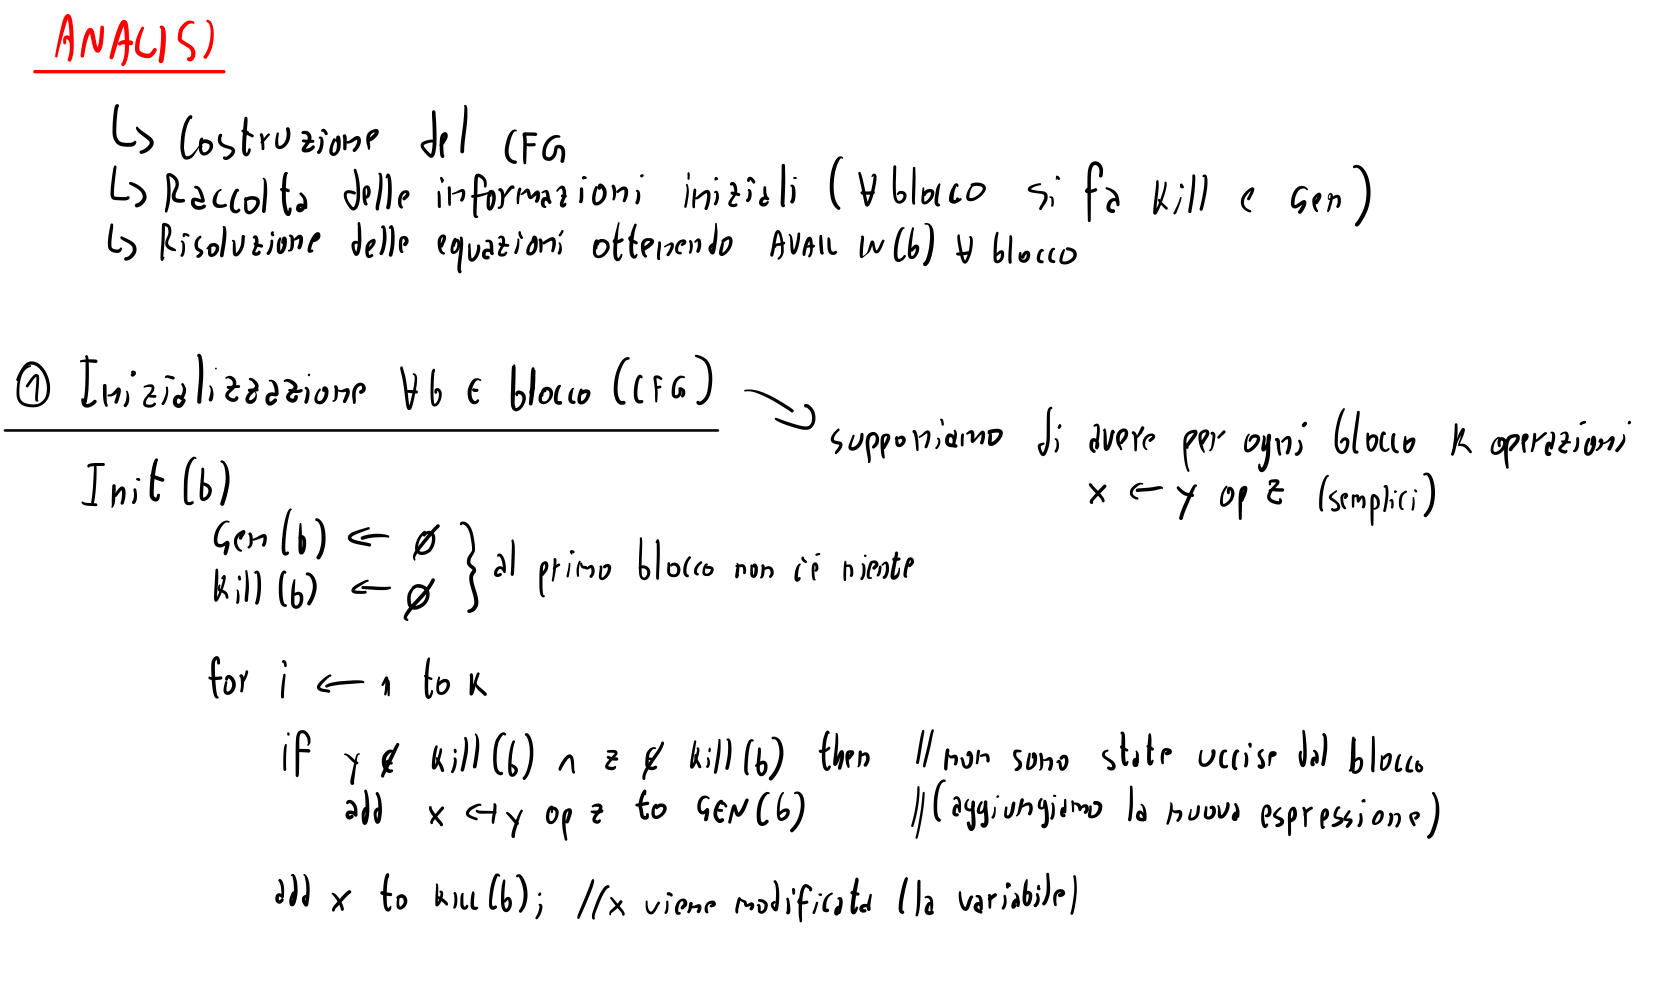 ANALISI
↳ Costruzione del CFG
↳ Raccolta delle informazioni iniziali (∀ blocco si fa Kill e Gen)
↳ Risoluzione delle equazioni ottenendo AVAIL IN(b) ∀ blocco
① Inizializzazione ∀b ∈ blocco (CFG)
supponiamo di avere per ogni blocco K operazioni
x ← y op z (semplici)
Init(b)
Gen(b) ← ∅
Kill(b) ← ∅
} al primo blocco non c'è niente
for i ← 1 to K
if y ∉ Kill(b) ∧ z ∉ Kill(b) then // non sono state uccise dal blocco
add x ← y op z to GEN(b) // (aggiungiamo la nuova espressione)
add x to KILL(b); // x viene modificata (la variabile)